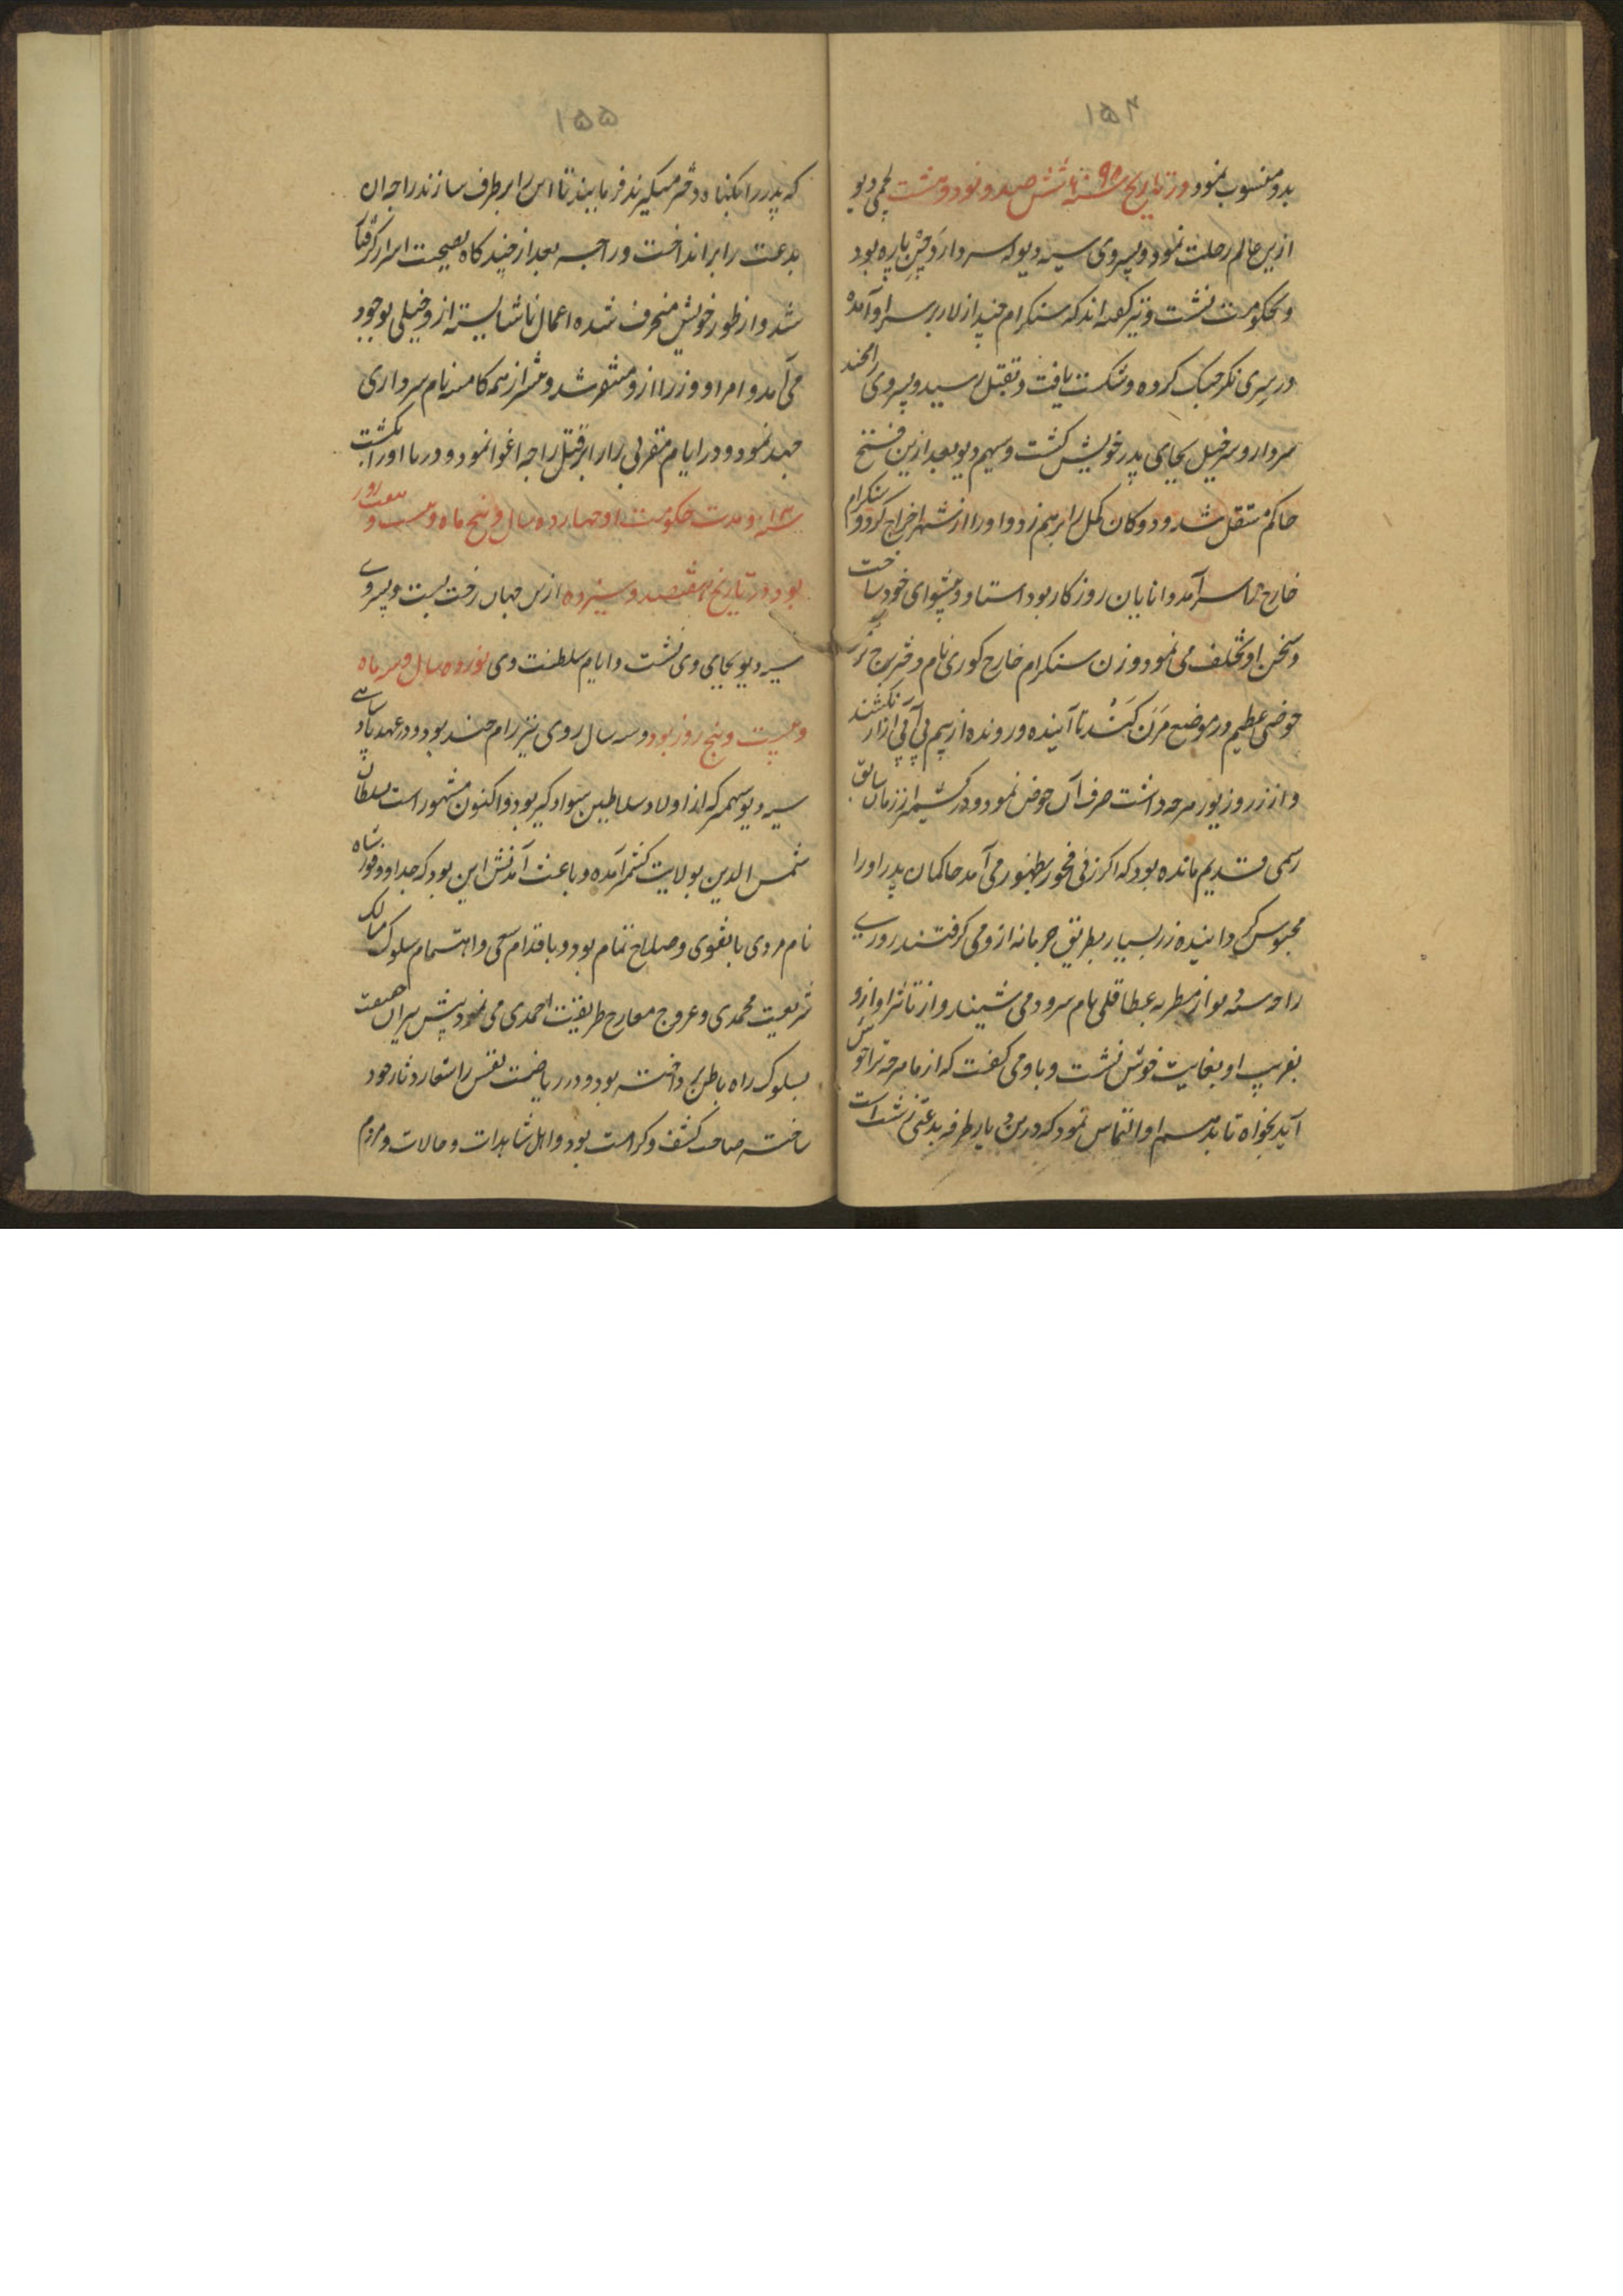 ۱۵۴
بدو منسوب نمود و در تاریخ سنه ۶۹۵ شش صد و نود و هشت لچمی دیو
ازین عالم رحلت نمود و پسر وی سیه دیو که سردار دچن پاره بود
و بحکومت نشست و نیز گفته اند که سنکرام چند از لار بر سر او آمده
در سری نکر جنک کرده و شکست یافت و بقتل رسید و پسر وی رامچند
سردار و سر خیل بجای پدر خویش کشت و سیهم دیو بعد ازین فتح
حاکم مستقل شد و دوکان کل را برهم زد و او را از شهر اخراج کرد و سنکرام
خارج که سرآمد دانایان روزکار بود استاد و پیشوای خود ساخت
و سخن او تخلف می نمود و زن سنکرام خارج کوری نام دختر برج
حوضی عظیم در موضع مرن کند تا آینده و رونده از بیم بی آبی آزار نکشند
و از زر و زیور هرچه داشت صرف آن حوض نمود و در کشمیر از زمان سابق
رسمی قدیم مانده بود که اکر زنی فجور بظهور می آمد حاکمان پدر او را
محبوس کردانیده زر بسیار بطریق جرمانه ازو می کرفتند روزی
راجه سیه دیو از مطربه عطا قلی نام سرود می شنید و از تاثر آواز و
بفریب او بغایت خوش نشست و با وی کفت که از ما هرچه ترا خوش
آید بخواه تا بدهیم او التماس نمود که درین دیار طرفه بدعتی زشت است
۱۵۵
که پدر را بکناه دختر میکیرند فرمایید تا این را برطرف سازند راجه آن
بدعت را برانداخت و راجه بعد از چند کاه بصحبت اشرار کرفتار
شد و از طور خویش منحرف شده اعمال ناشایسته ازو خیلی بوجود
می آمد و امرا و وزرا ازو متنفر شد و بیشتر از همه کامسه نام سرداری
جهد نمود و در ایام مقربی را بر قتل راجه اغوا نمود و دریا او را بکشت
سنه ۱۳ و مدت حکومت او چهارده سال و پنج ماه و بیست و هفت روز
بود و در تاریخ هفتصد و سیزده ازین جهان رخت بست و پسر وی
سیه دیو بجای وی نشست و ایام سلطنت وی نوزده سال و سه ماه
و بیست و پنج روز بود و سه سال روی نیز رام چند بود و در عهد پادشاهی
سیه دیو سهمیر که از اولاد سلاطین سواد کیر بود و اکنون مشهور است سلطان
شمس الدین بولایت کشمیر آمده و باعث آمدنش این بود که جد او وقور شاه
نام مردی با تقوی و صلاح تمام بود و با قدام سعی و اهتمام سلوک مسالک
شریعت محمدی و عروج معارج طریقت احمدی می نمود پیش پیران حقیقت
بسلوک راه باطن پرداخته بود و در ریاضت نفس را شعار و دثار خود
ساخته صاحب کشف و کرامت بود و اهل مشاهدات و حالات و مردم